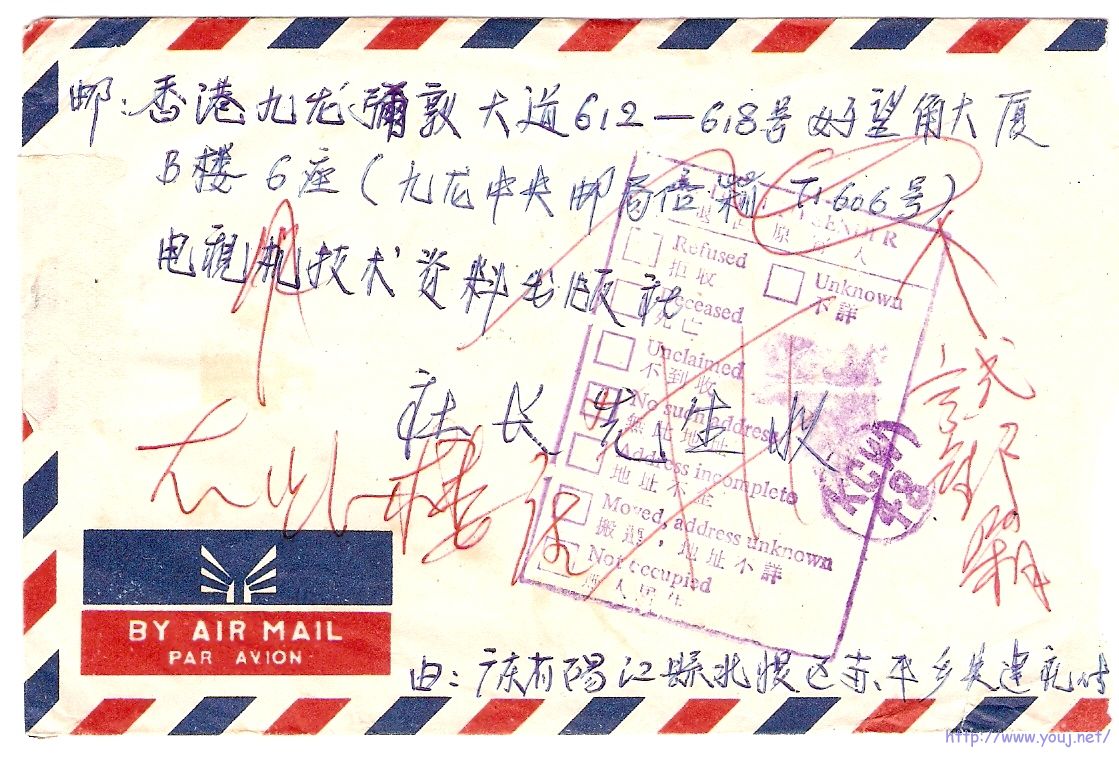 邮：香港九龙彌敦大道612—618号好望角大厦
B楼6座（九龙中央邮局信箱 606号）
电視机技术资料出版社
社长先生收
SENDER
Refused
拒收
Unknown
不詳
Deceased
死亡
Unclaimed
不到收
No such address
無此地址
Address incomplete
地址不足
Moved, address unknown
搬遷，地址不詳
Not occupied
無人居住
不在此樓
試
BY AIR MAIL
PAR AVION
由：广东省陽江縣北慣区赤平乡
http://www.youj.net/